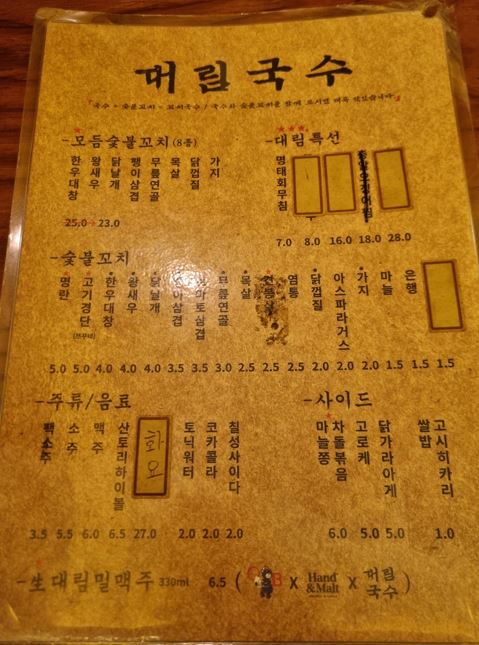 대림국수
「국수 + 숯불꼬치 = 꼬치국수 / 국수와 숯불꼬치를 함께 드시면 더욱 맛있습니다.」
-모듬숯불꼬치(8종)
한우대창
왕새우
닭날개
팽이삼겹
무릎연골
목살
닭껍질
가지
25.0→23.0
★★★
-대림특선
명태회무침
7.0 8.0 16.0 18.0 28.0
-숯불꼬치
명란
고기경단
(쯔꾸네)
한우대창
왕새우
닭날개
토마토삼겹
무릎연골
목살
염통
닭껍질
아스파라거스
가지
마늘
은행
5.0 5.0 4.0 4.0 4.0 3.5 3.5 3.0 2.5 2.5 2.5 2.0 2.0 2.0 1.5 1.5 1.5
-주류/음료
소주
맥주
산토리하이볼
화요
토닉워터
코카콜라
칠성사이다
3.5 5.5 6.0 6.5 27.0 2.0 2.0 2.0
-사이드
마늘쫑
차돌볶음
고로케
닭가라아게
쌀밥
고시히카리
6.0 5.0 5.0 1.0
-生대림밀맥주 330ml 6.5 ( X Hand &Malt X 대림국수 )